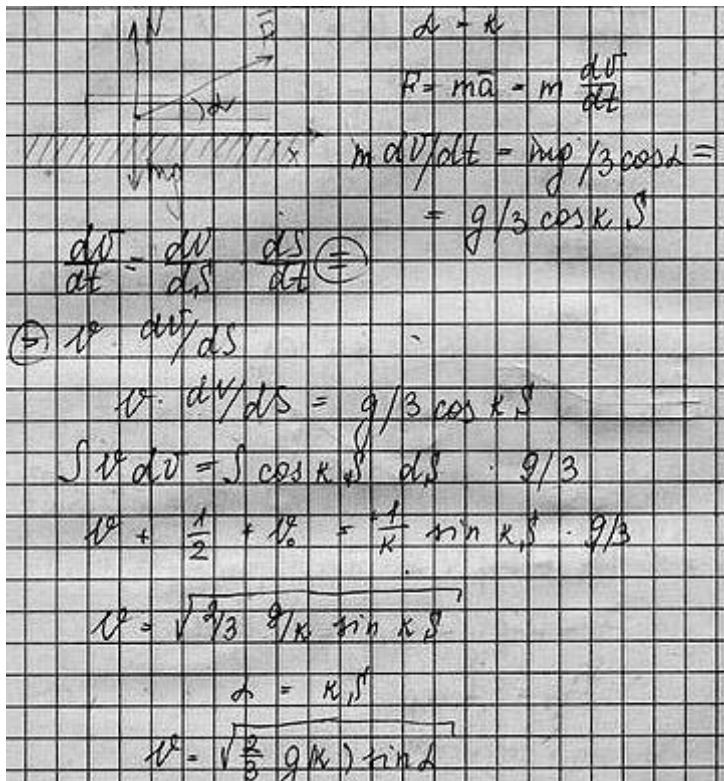 N F
α - к
α
F = ma̅ = m dv̅/dt
x
mg
m dv/dt = mg/3 cosα =
= g/3 cos к S
dv/dt = dv/dS · dS/dt =
= v · dv/dS
v · dv/dS = g/3 cos к S
∫ v dv = ∫ cos к S dS · g/3
v + 1/2 + v₀ = 1/к sin к S · g/3
v = √2/3 g/к sin к S
α = к S
v = √2/3 g(к) sinα